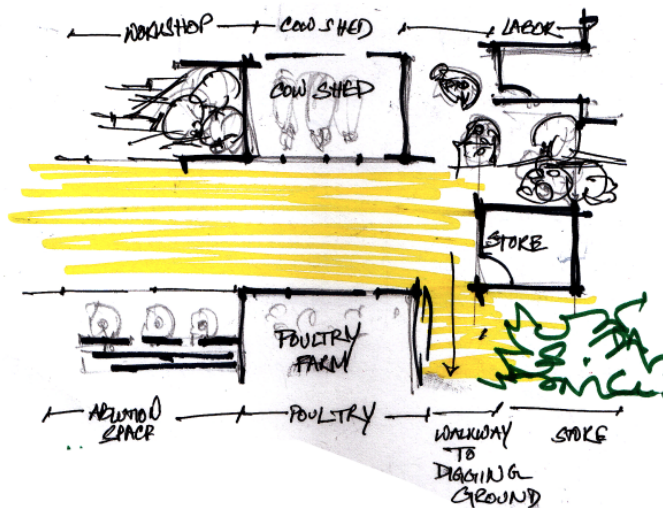 WORKSHOP
COW SHED
LABOR
COW SHED
STORE
POULTRY
FARM
ABLUTION
SPACE
POULTRY
WALKWAY
TO
DIGGING
GROUND
STORE